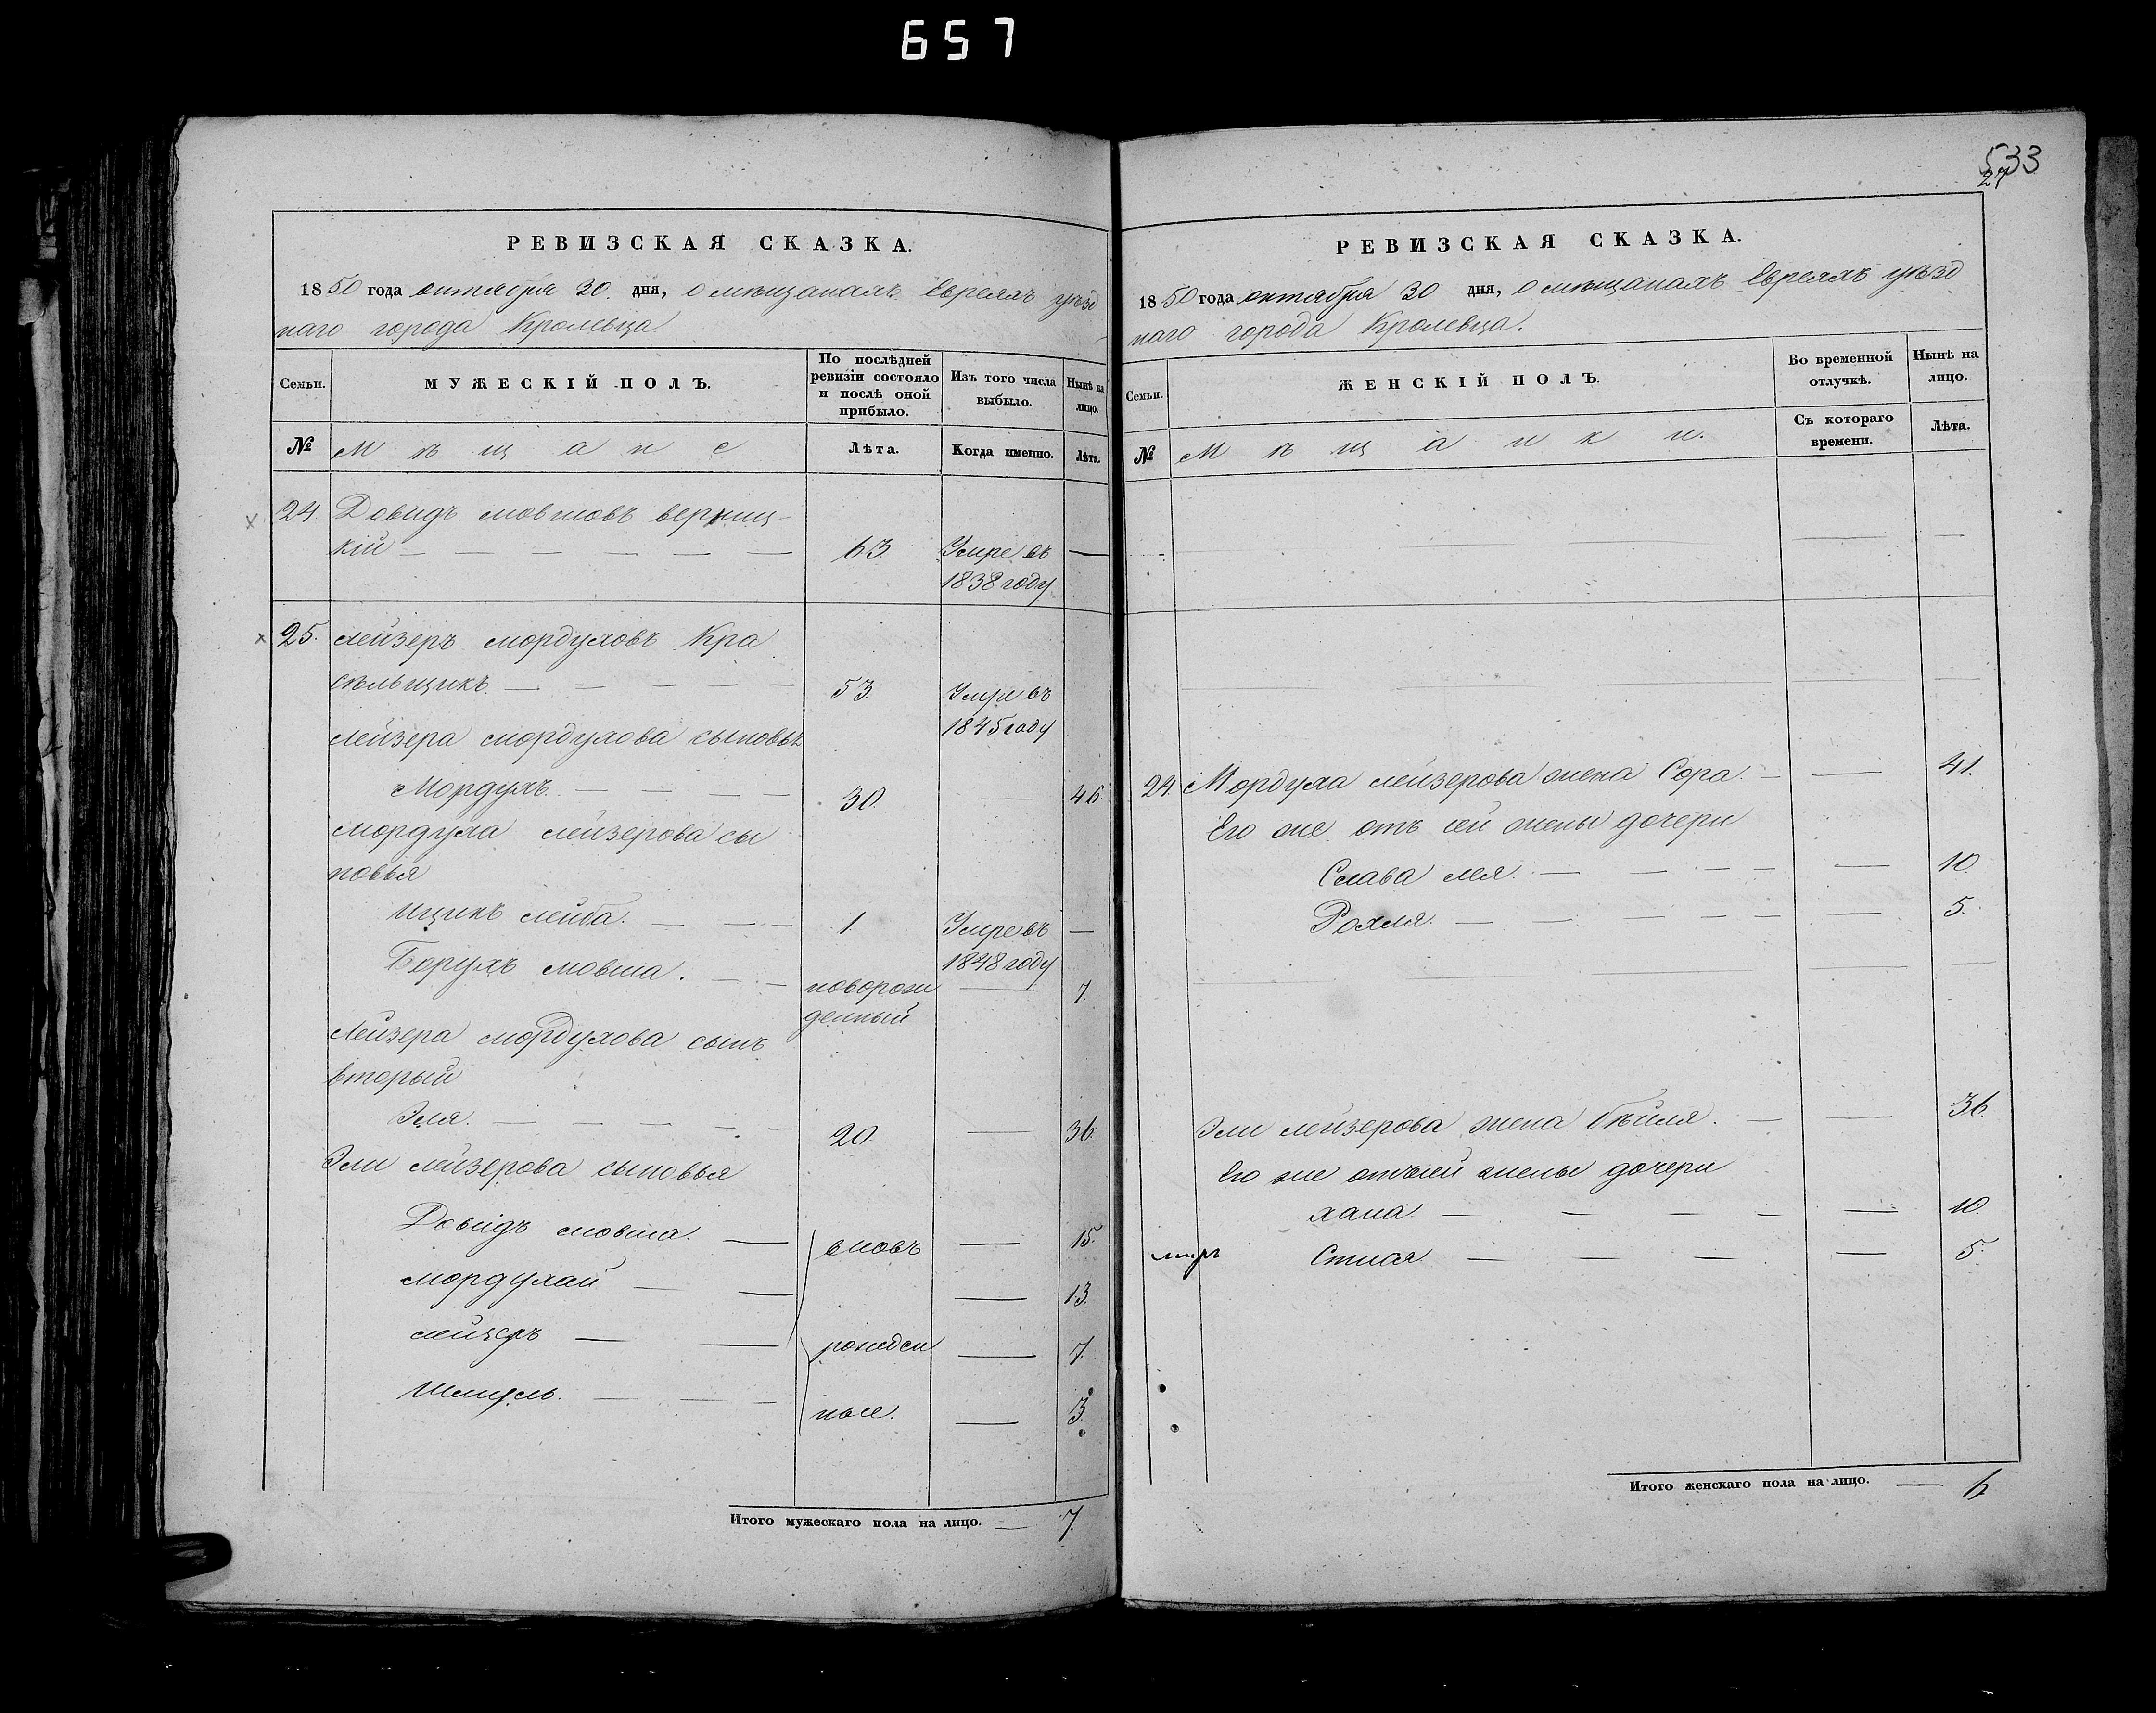 657
533
27
РЕВИЗСКАЯ СКАЗКА.
1850 года октября 30. дня, о мѣщанахъ Евреяхъ уѣзд
наго города Кролевца
Семьи.
МУЖЕСКІЙ ПОЛЪ.
По послѣдней ревизіи состояло и послѣ оной прибыло.
Изъ того числа выбыло.
Нынѣ на лицо.
№
Мѣщане
Лѣта.
Когда именно.
Лѣта.
24. Довидъ мовшовъ
кій — 63 Умре въ —
1838 году
25. лейзеръ мордуховъ Кра
сѣльщикъ. — 53. Умре въ
1845 году
лейзера мордухова сыновья
Мордухъ. — 30. — 46
мордуха лейзерова сы
новья
ицикъ лейба. — 1 Умре въ —
1848 году
Борухъ мовша. — новорож — 7.
денный
Лейзера мордухова сынъ
вторый
Эля. — 20. — 36.
Эли лейзерова сыновья
Довидъ мовша. — вновь — 15.
мордухай — — 13.
лейзеръ — рожден — 7.
Шмуль. — ные. — 3.
Итого мужескаго пола на лицо. — 7.
РЕВИЗСКАЯ СКАЗКА.
1850 года октября 30 дня, о мѣщанахъ Евреяхъ уѣзд
наго города Кролевца.
Семьи.
ЖЕНСКІЙ ПОЛЪ.
Во временной отлучкѣ.
Нынѣ на лицо.
№
Мѣщанки.
Съ котораго времени.
Лѣта.
24. Мордуха лейзерова жена Сора. — 41.
Его же отъ сей жены дочери
Слава лея. — 10.
Рохля. — 5.
Эли лейзерова жена бѣйля. — 36.
Его же отъ сей жены дочери
хана. — 10.
— 5.
Итого женскаго пола на лицо. — 6